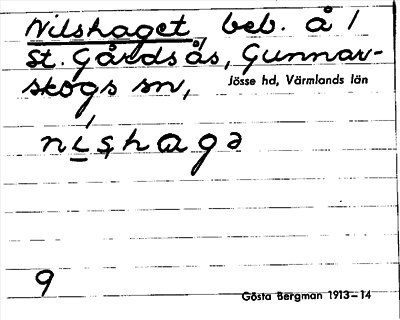 Nilshaget, beb. å /
St. Gårdsås, Gunnar-
skogs sn,
Jösse hd, Värmlands län
ni̲shagə
9
Gösta Bergman 1913–14